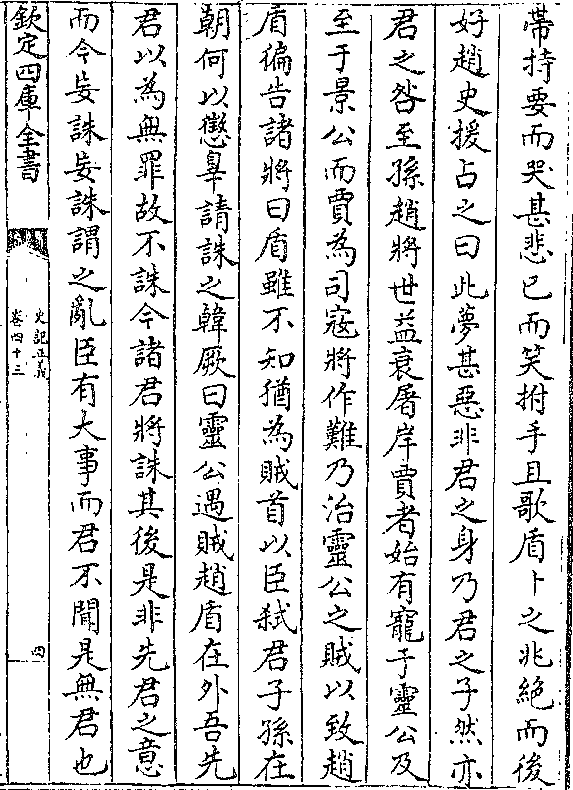 帶持要而哭甚悲已而笑拊手且歌盾卜之兆絕而後
好趙史援占之曰此夢甚惡非君之身乃君之子然亦
君之咎至孫趙將世益衰屠岸賈者始有寵于靈公及
至于景公而賈為司寇將作難乃治靈公之賊以致趙
盾徧告諸將曰盾雖不知猶為賊首以臣弒君子孫在
朝何以懲辠請誅之韓厥曰靈公遇賊趙盾在外吾先
君以為無罪故不誅今諸君將誅其後是非先君之意
而今妄誅妄誅謂之亂臣有大事而君不聞是無君也
欽定四庫全書
史記正義
卷四十三
四